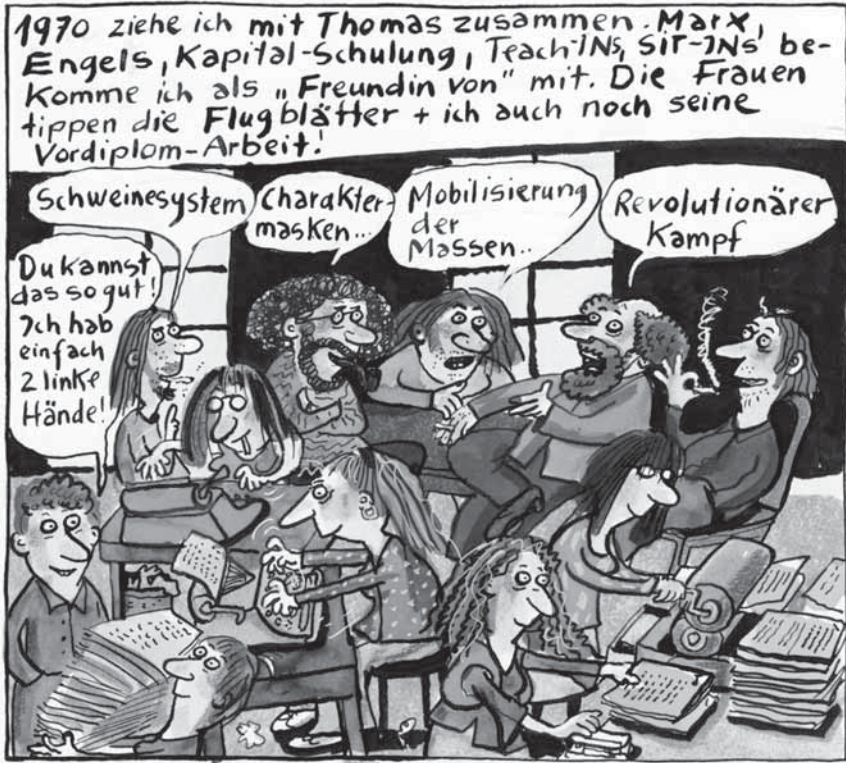 1970 ziehe ich mit Thomas zusammen. Marx,
Engels, Kapital-Schulung, Teach-INs, SIT-INs be-
komme ich als „Freundin von" mit. Die Frauen
tippen die Flugblätter + ich auch noch seine
Vordiplom-Arbeit!
Schweinesystem
Charakter-
masken..
Mobilisierung
der
Massen..
Revolutionärer
Kampf
Du kannst
das so gut!
Ich hab
einfach
2 linke
Hände!